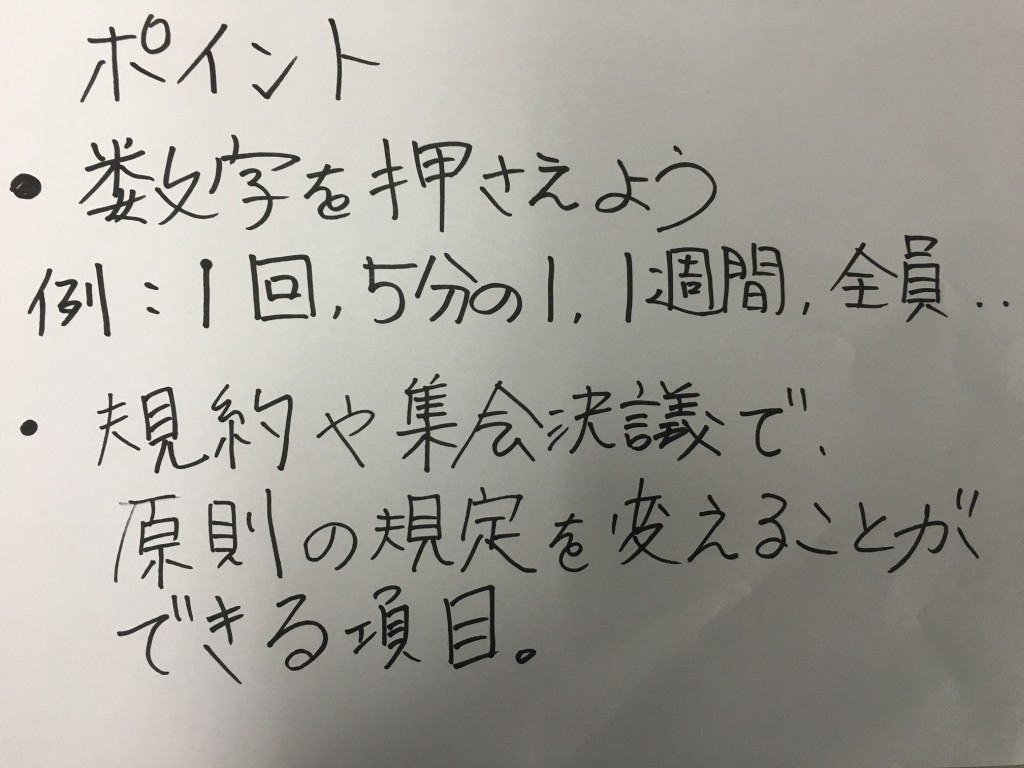 ポイント
● 数字を押さえよう
例：1回, 5分の1, 1週間, 全員..
・ 規約や集会決議で、
原則の規定を変えることが
できる項目。